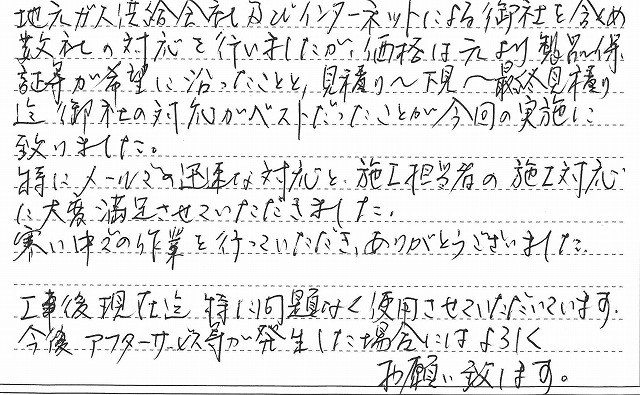 地元ガス供給会社及びインターネットによる御社を含め
数社の対応を行いましたが、価格は元より製品保
証等が希望に沿ったことと、見積り〜下見〜最終見積り
迄御社の対応がベストだったことが今回の実施に
致りました。
特にメールでの迅速な対応と、施工担当者の施工対応
に大変満足させていただきました。
寒い中での作業を行っていただき、ありがとうございました。
工事後現在迄特に問題なく使用させていただいています。
今後アフターサービス等が発生した場合にはよろしく
お願い致します。